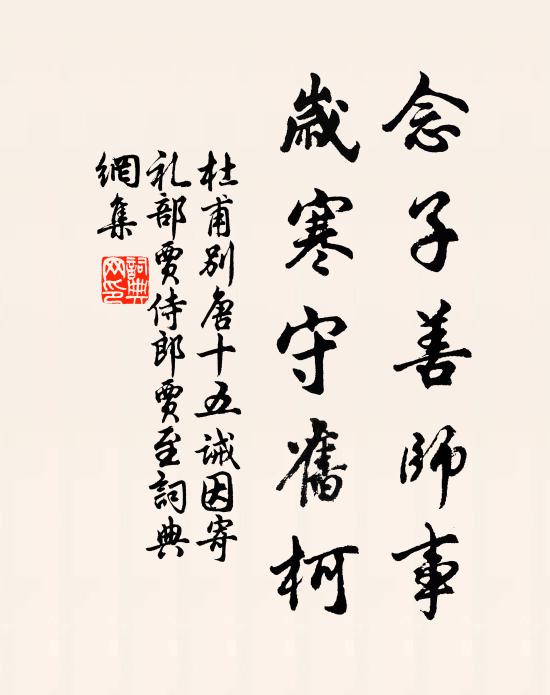 念子善師事
歲寒守舊柯
杜甫別唐十五誡因寄
礼部賈侍郎賈至詞典
網集
詞典網印